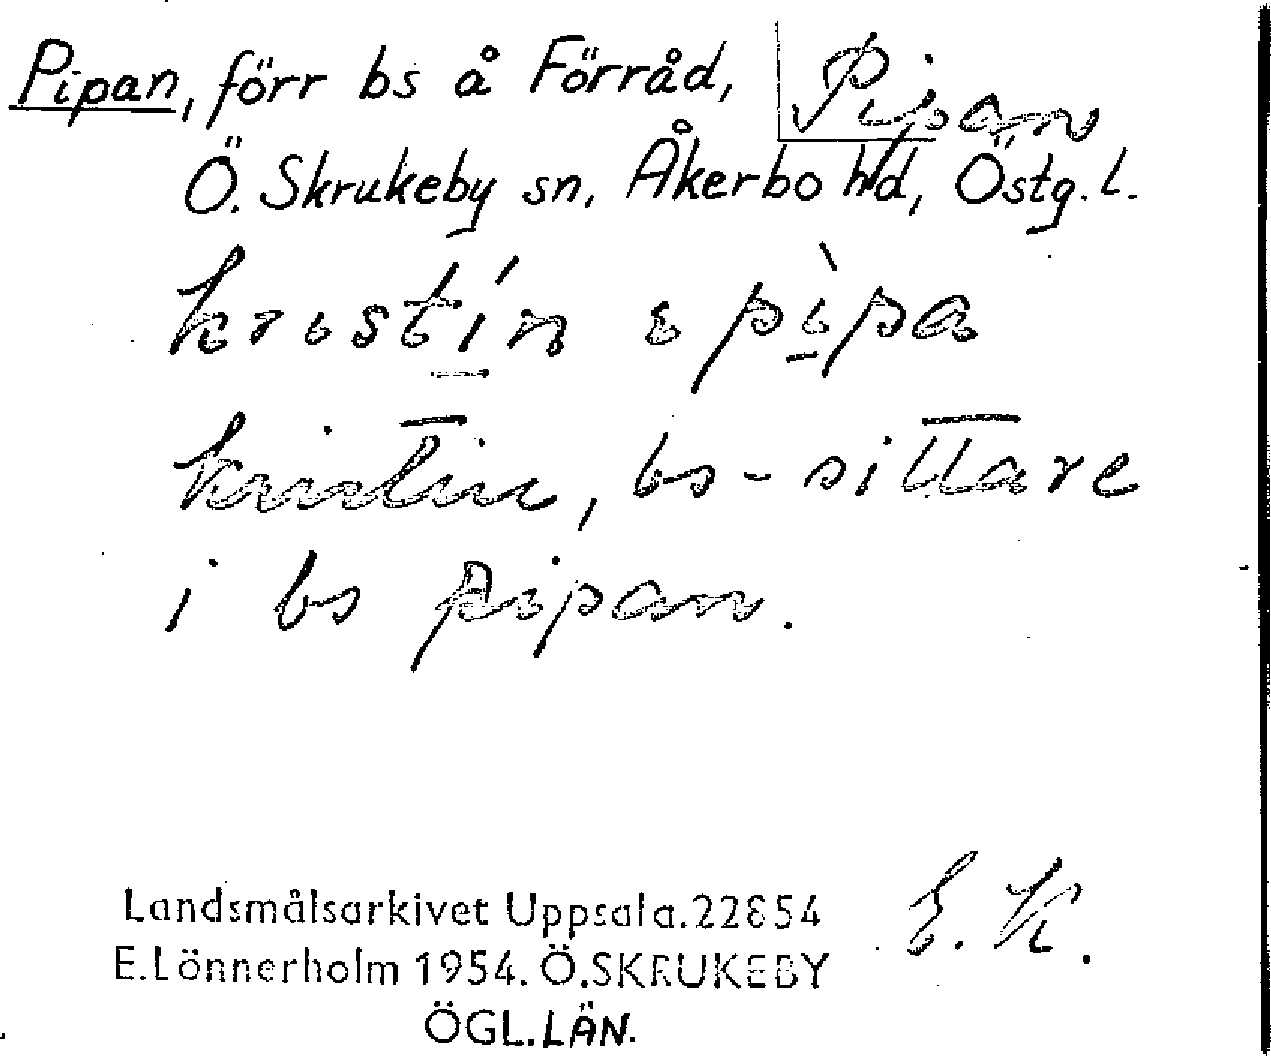 Pipan, förr bs å Förråd,
Pipan
Ö. Skrukeby sn, Åkerbo hd, Östg. l.
kristín i pìpa
kristin, bs-sittare
i bs pipan.
E. K.
Landsmålsarkivet Uppsala.22854
E.Lönnerholm 1954. Ö.SKRUKEBY
ÖGL.LÄN.